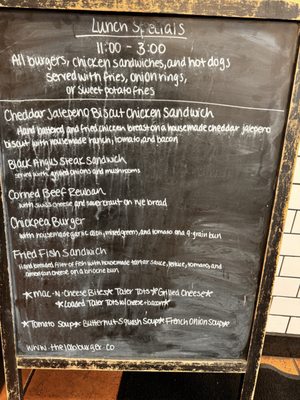 Lunch Specials
11:00 - 3:00
All burgers, chicken sandwiches, and hot dogs
served with fries, onion rings,
or sweet potato fries
Cheddar Jalepeno Biscuit Chicken Sandwich
Hand battered and fried chicken breast on a housemade cheddar jalepeno
biscuit with housemade ranch, tomato and bacon
Black Angus Steak Sandwich
served with grilled onions and mushrooms
Corned Beef Reuban
with swiss cheese and sauerkraut on rye bread
Chickpea Burger
with housemade garlic aioli, mixed greens, and tomato on a 9-grain bun
Fried Fish Sandwich
Hand breaded, filet of fish with housemade tartar sauce, lettuce, tomato, and
american cheese on a brioche bun
*Mac-N-Cheese Bites* Tater Tots* Grilled Cheese*
*Loaded Tater Tots w/ cheese + bacon*
*Tomato Soup* Butternut Squash Soup* French Onion Soup*
www.thelabburger.co